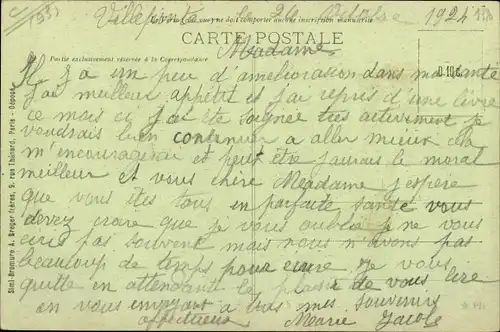 Villepinte le 26 Octobre 1924
CARTE POSTALE
Madame
Partie exclusivement réservée à la Correspondance
Il y a un peu d'ameliorasion dans ma santé
j'ai meilleur appétit et j'ai repris d'une livre
ce mois ci j'ai ete soignee tres activement je
voudrais bien continuer a aller mieux cela
m'encouragerai et peut etre j'aurais le moral
meilleur et vous chère Meadame j'espère
que vous êtes tous en parfaite santé vous
devez croire que je vous oublie je ne vous
ecris pas souvent mais nous n'avons pas
beaucoup de temps pour ecrire. je vous
quitte en attendant le plaisir de vous lire
en vous envoyant a tous mes souvenirs
affectueux Marie Jacob
Simi-Bromure A. Breger frères, 9, rue Thénard, Paris - Déposé